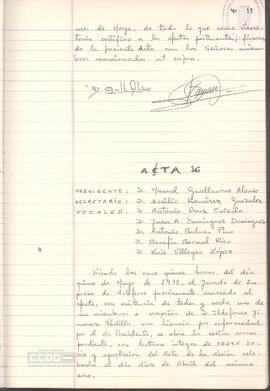 Nº 13
mes de Mayo, de todo lo que como Secre-
tario certifico a los efectos pertinentes, firmando
de la presente Acta con los Señores miem-
bros mencionados ut supra.
ACTA 16
PRESIDENTE: D. Manuel Guallaume Alonso
SECRETARIO: D. Emilio Ramírez Gonzalez
VOCALES: D. Antonio Cruz Oviedo
D. Juan A. Dominguez Dominguez
D. Antonio Pino
D. Serafín Bernal Rico
D. Luis Villegas López
Siendo las once quince horas, del día
quince de Mayo de 1973, el Jurado de Em-
presa de Astilleros previamente convocado al
efecto, con asistencia de todos y cada uno de
sus miembros a excepción de D. Ildefonso Ji-
menez Padilla, con licencia por enfermedad
por el Sr. Presidente, se abre la sesión corres-
pondiente, con lectura íntegra de ORDEN DEL
DIA y aprobación del Acta de la sesión cele-
brada el día doce de Abril del mismo
año.
CCOO